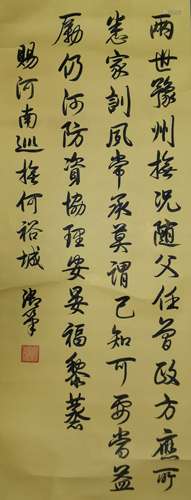 兩世豫州撫況隨父任曾政方應所
悉家訓夙常承莫謂已知可要當益
勵仍河防資協理安晏福黎蒸
賜河南巡撫何裕城 御筆